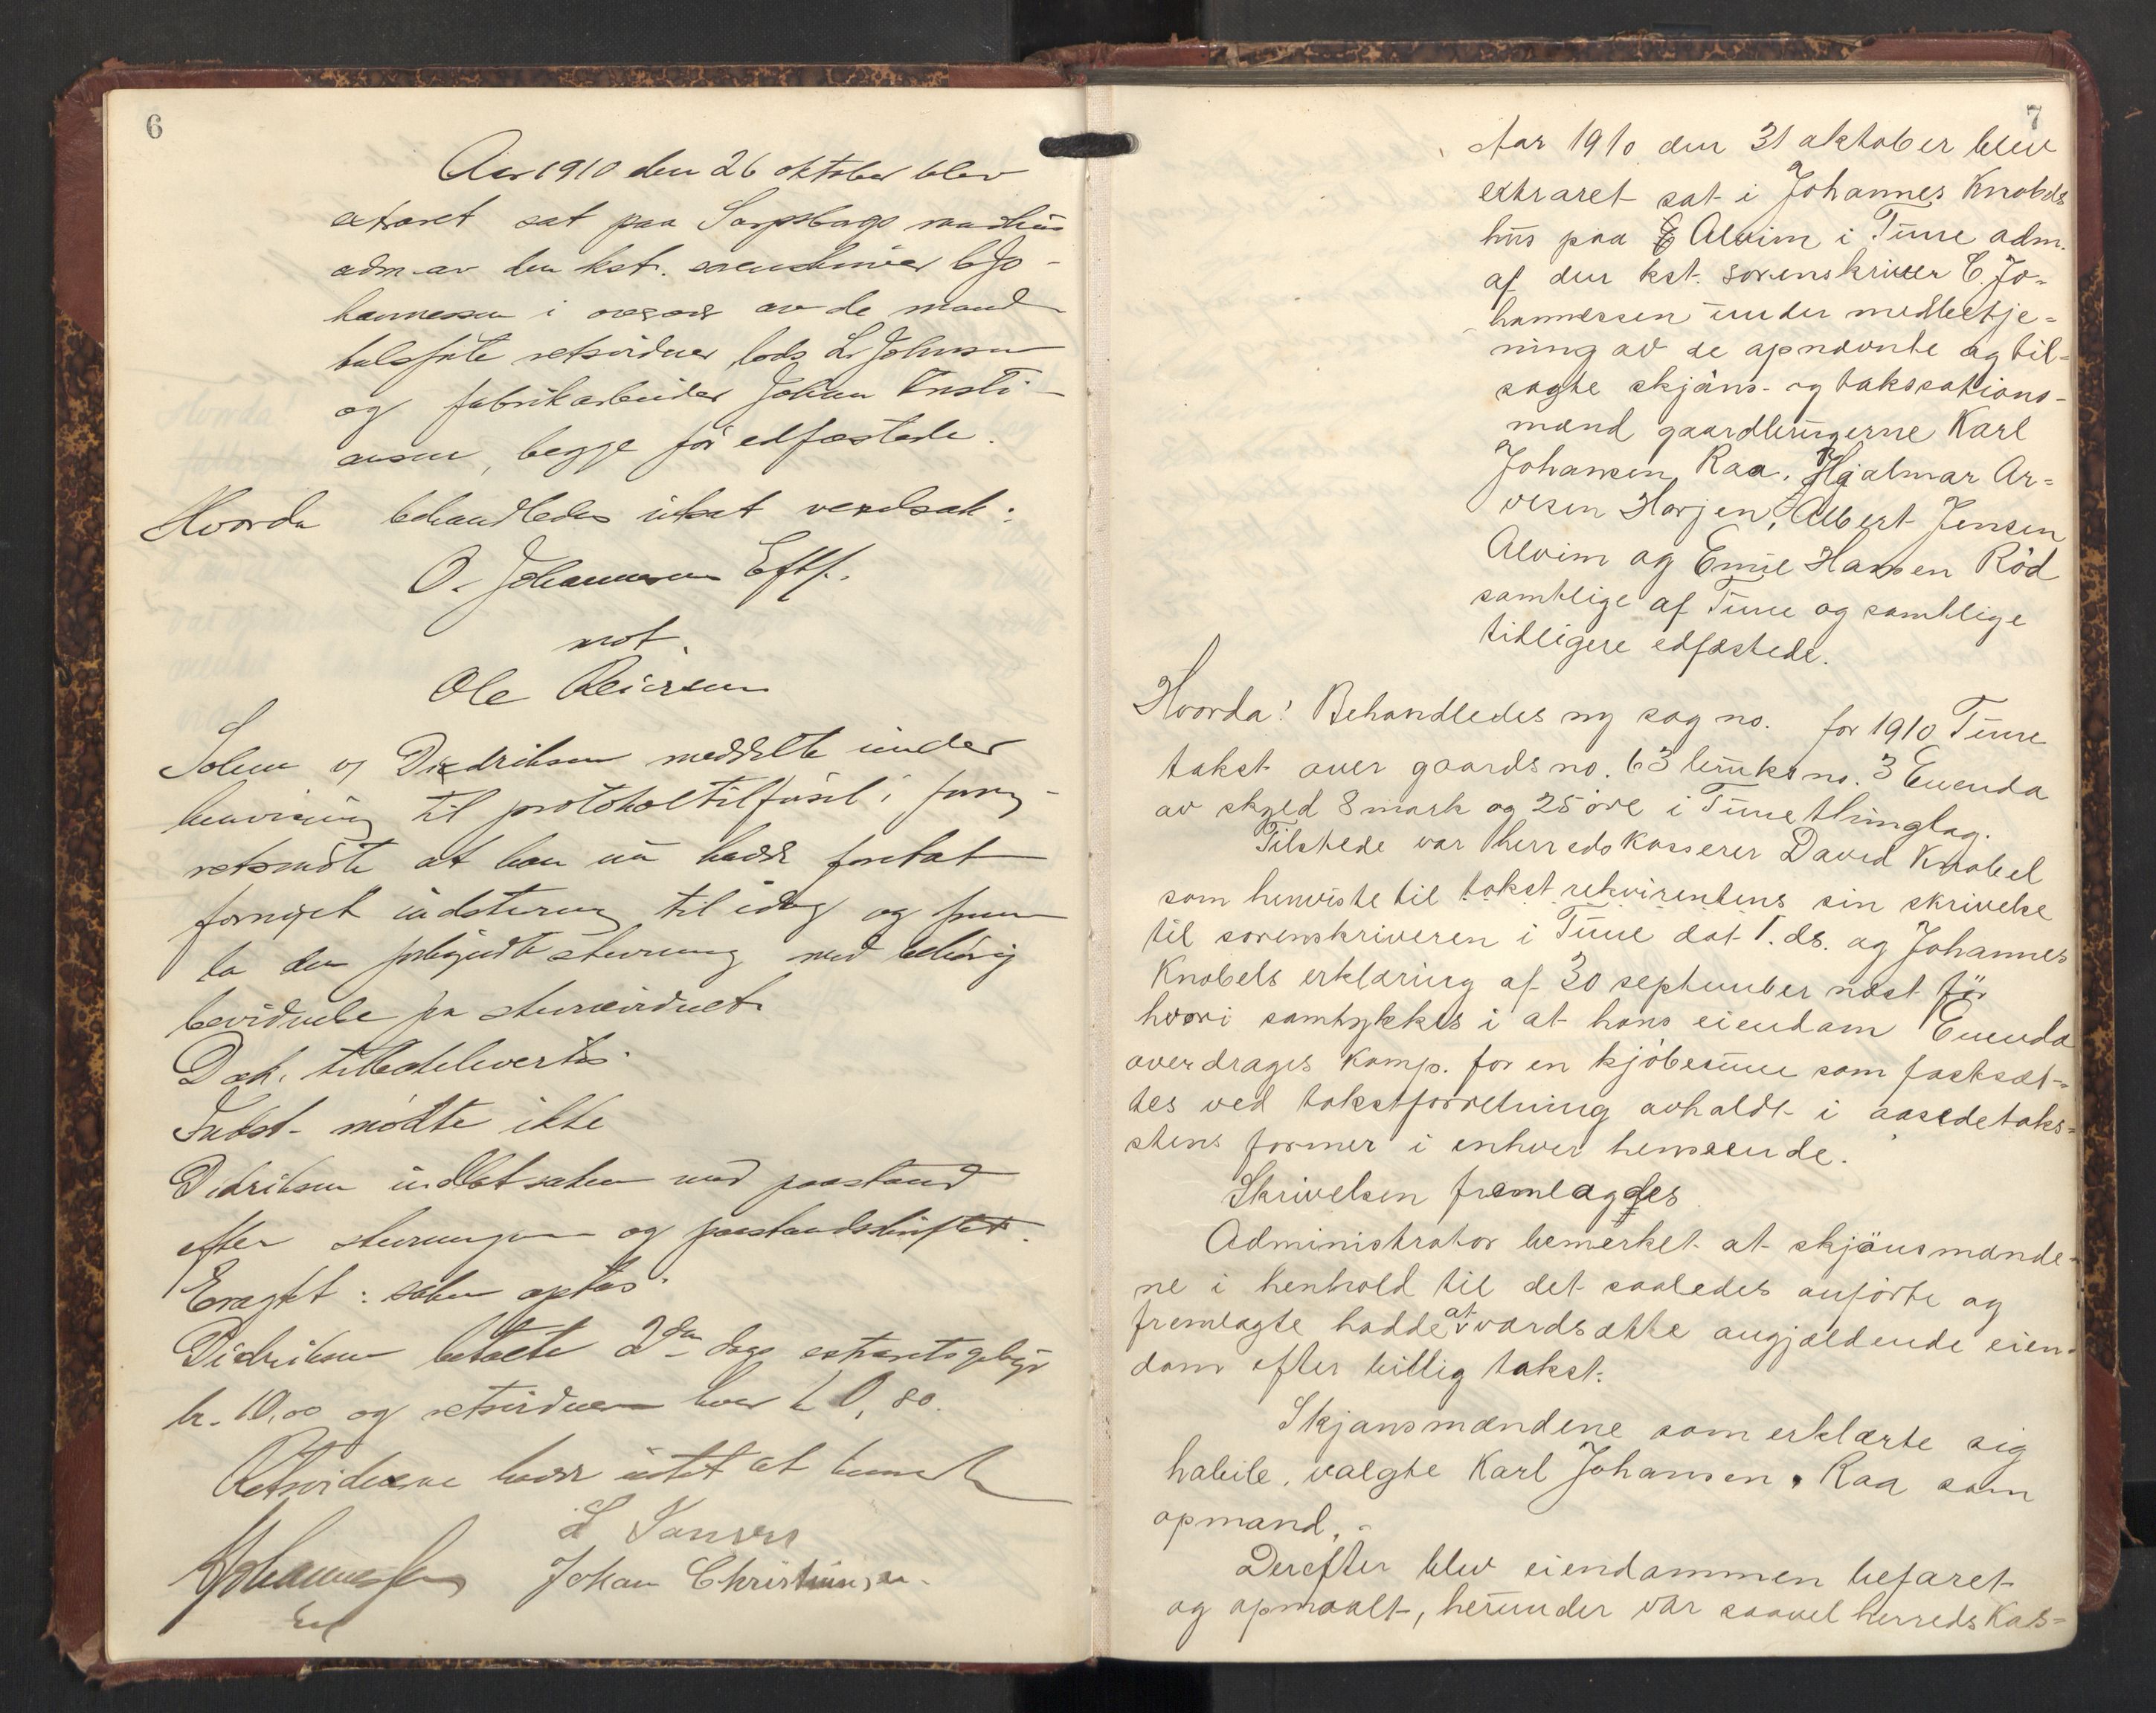 6
Aar 1910 den 26 oktober blev
extraret sat paa Sarpsborgs raadhus
adm. av den kst. sorenskriver C. Jo-
hannessen i overvær av de mand-
talsførte retsvidner lods L. Johnsen
og fabrikarbeider Johan Kristi-
ansen, begge før edfæstede.
Hvorda behandledes utsat verdsak:
O. Johannesens Eftf.
mot
Ole Reiersen
Solem og Diedriksen meddelte under
henvisning til protokoltilførsel i forrige
retsmøte at han nu hadde foretat
fornyet indstevning til idag og frem
la den stevning med behørig
bevidnelse fra stevnevidnet.
Dok. tilbakelevertes.
Indst. møtte ikke
Didriksen indlot saken med paastand
efter stevningen og paastandsskriftet.
Eragtet: saken optas.
Didriksen betalte 2den dags extraretsgebyr
kr. 10,00 og retsvidnerne hver k 0,80.
Retsvidnerne hadde intet at bemerke
L Jonsen
CJohannessen Johan Christiansen
7
Aar 1910 den 31 oktober blev
extraret sat i Johannes Knobels
hus paa Alvim i Tune adm.
af den kst. sorenskriver C. Jo-
hannessen under medbetje-
ning av de opnævnte og til-
sagte skjøns- og takssations-
mænd gaardbrugerne Karl
Johansen, Raa, Hjalmar Ar-
vesen Horjen, Albert Jensen
Alvim og Emil Hansen Röd
samtlige af Tune og samtlige
tidligere edfæstede.
Hvorda! Behandledes ny sag no. for 1910 Tune
takst over gaards no. 63 bruks no. 3 Enenda
av skyld 8 mark og 25 øre i Tune thinglag.
Tilstede var herredskasserer David Knobel
som henviste til takst rekvirentens sin skrivelse
til sorenskriveren i Tune dat 1. ds. og Johannes
Knobels erklæring af 30 september næst før
hvori samtykkes i at hans eiendom Enenda
overdrages Komp. for en kjöbesum som fastsæt-
tes ved takstforretning avholdt i aasædetaks-
stens former i enhver henseende.
Skrivelsen fremlagdes
Administrator bemerket at skjönsmænde-
ne i henhold til det saaledes anførte og
fremlagte hadde at værdsætte angjældende eien-
dom efter billig takst.
Skjønsmændene som erklærte sig
habile, valgte Karl Johansen, Raa som
opmand.
Derefter blev eiendommen befaret
og opmaalt, herunder var saavel herreds Kas-